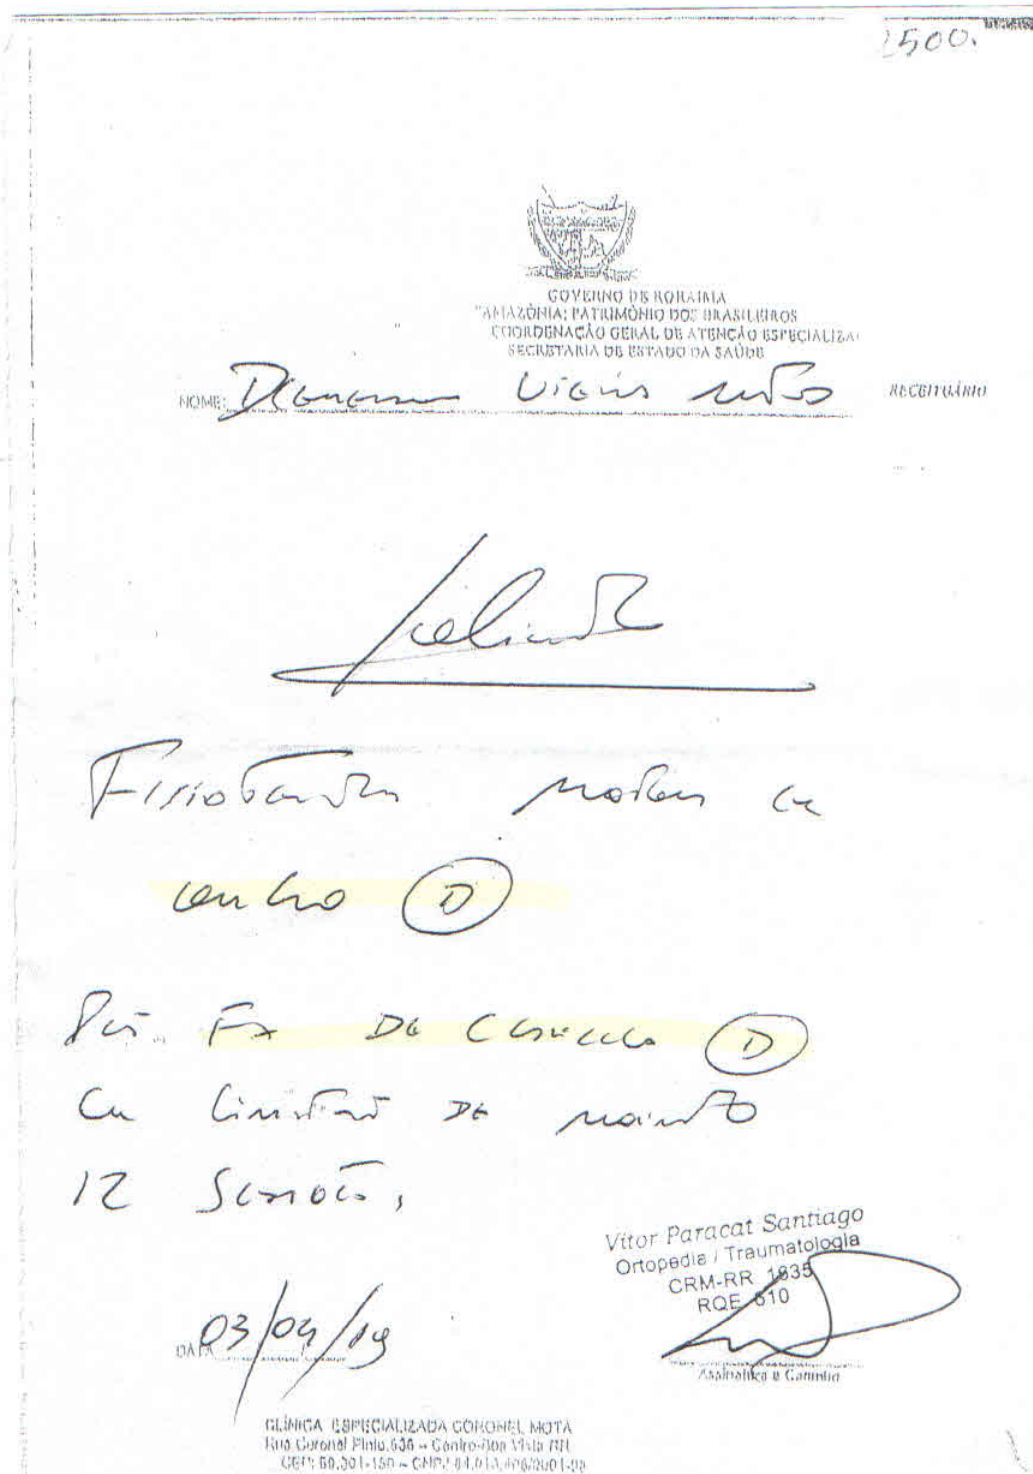 GOVERNO DE RORAIMA
"AMAZÔNIA: PATRIMÔNIO DOS BRASILEIROS
COORDENAÇÃO GERAL DE ATENÇÃO ESPECIALIZA
SECRETARIA DE ESTADO DA SAÚDE
NOME:
RECEITUÁRIO
Fisioterapia motora em
ombro D
Pós. Fx De Clavícula D
Com limitação De movimento
12 Sessões,
Vitor Paracat Santiago
Ortopedia / Traumatologia
CRM-RR 1835
RQE 610
DATA 03/04/19
Assinatura e Carimbo
CLÍNICA ESPECIALIZADA CORONEL MOTA
Rua Coronel Pinto, 636 – Centro-Boa Vista RR